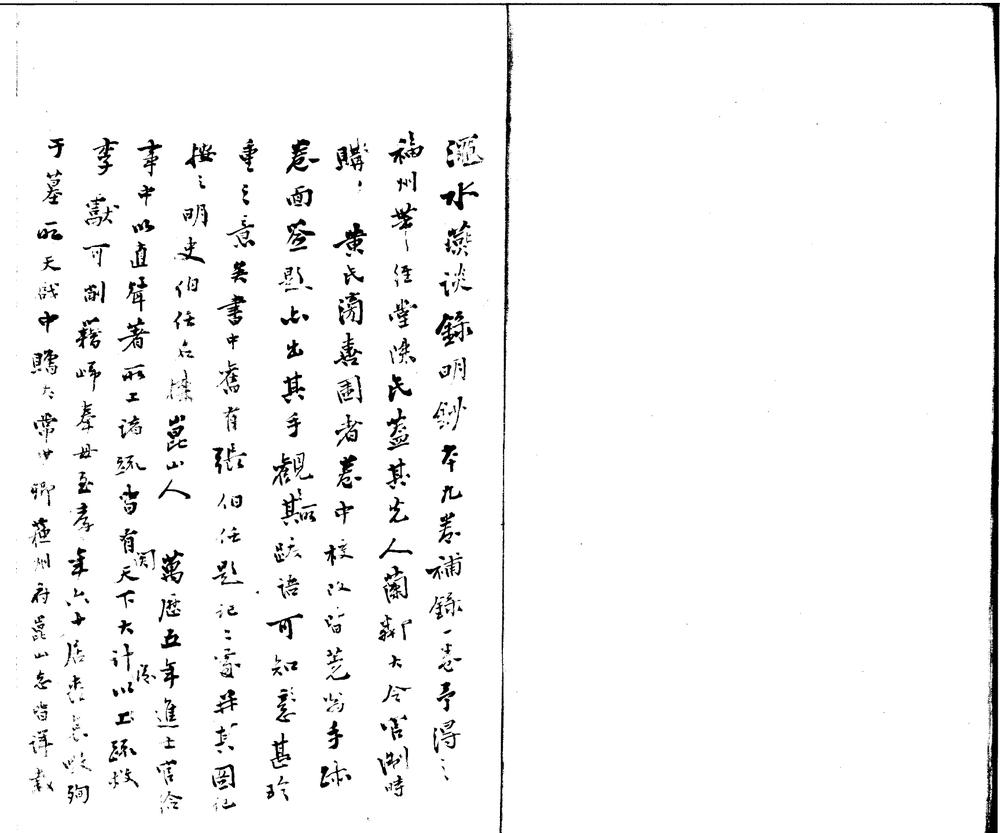 澠水燕談錄明鈔本九卷補錄一卷予得之
福州帶經堂陳氏蓋其先人蘭鄰大令官浙時
購 黃氏滂喜園者卷中校改皆蕘翁手跡
卷面簽題亦出其手觀其所跋語可知意甚珍
重之意矣書中舊有張伯任題記二處并其圖記
按之明史伯任名棟崑山人 萬歷五年進士官給
事中以直聲著所上諸疏皆有關天下大計以上疏救
李獻可削藉歸奉母至孝年六十居喪哀毀殉
于墓所天啟中贈太常少卿蘇州府崑山志皆詳載